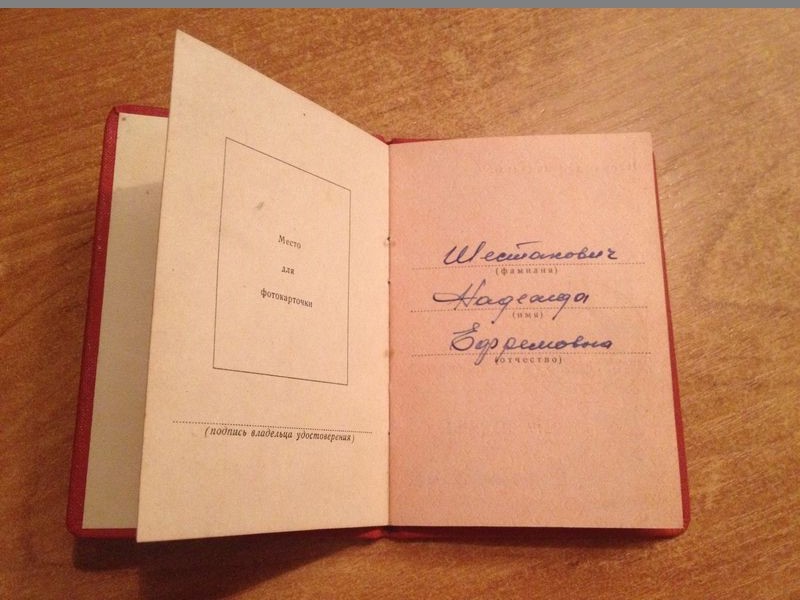 Место
для
фотокарточки
(подпись владельца удостоверения)
Шестакович
(фамилия)
Надежда
(имя)
Ефремовна
(отчество)